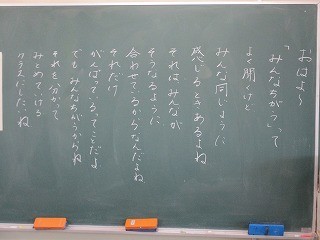 おはよ〜
「みんなちがう」って
よく聞くけど
みんな同じように
感じるときあるよね
それはみんなが
そうなるように
合わせているからなんだよね
それだけ
がんばっているってことだよ
でもみんなちがうからね
それを分かって
みとめていける
クラスにしたいね